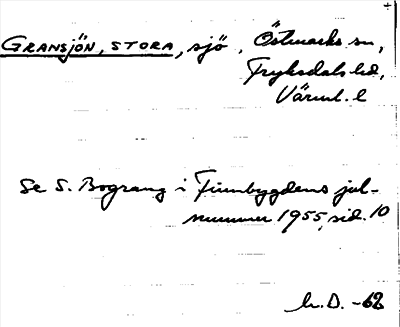 GRANSJÖN, STORA, sjö, Östmarks sn,
Fryksdals hd,
Värml. l
Se S. Bograng i Finnbygdens jul-
nummer 1955, sid. 10
h.D. -62